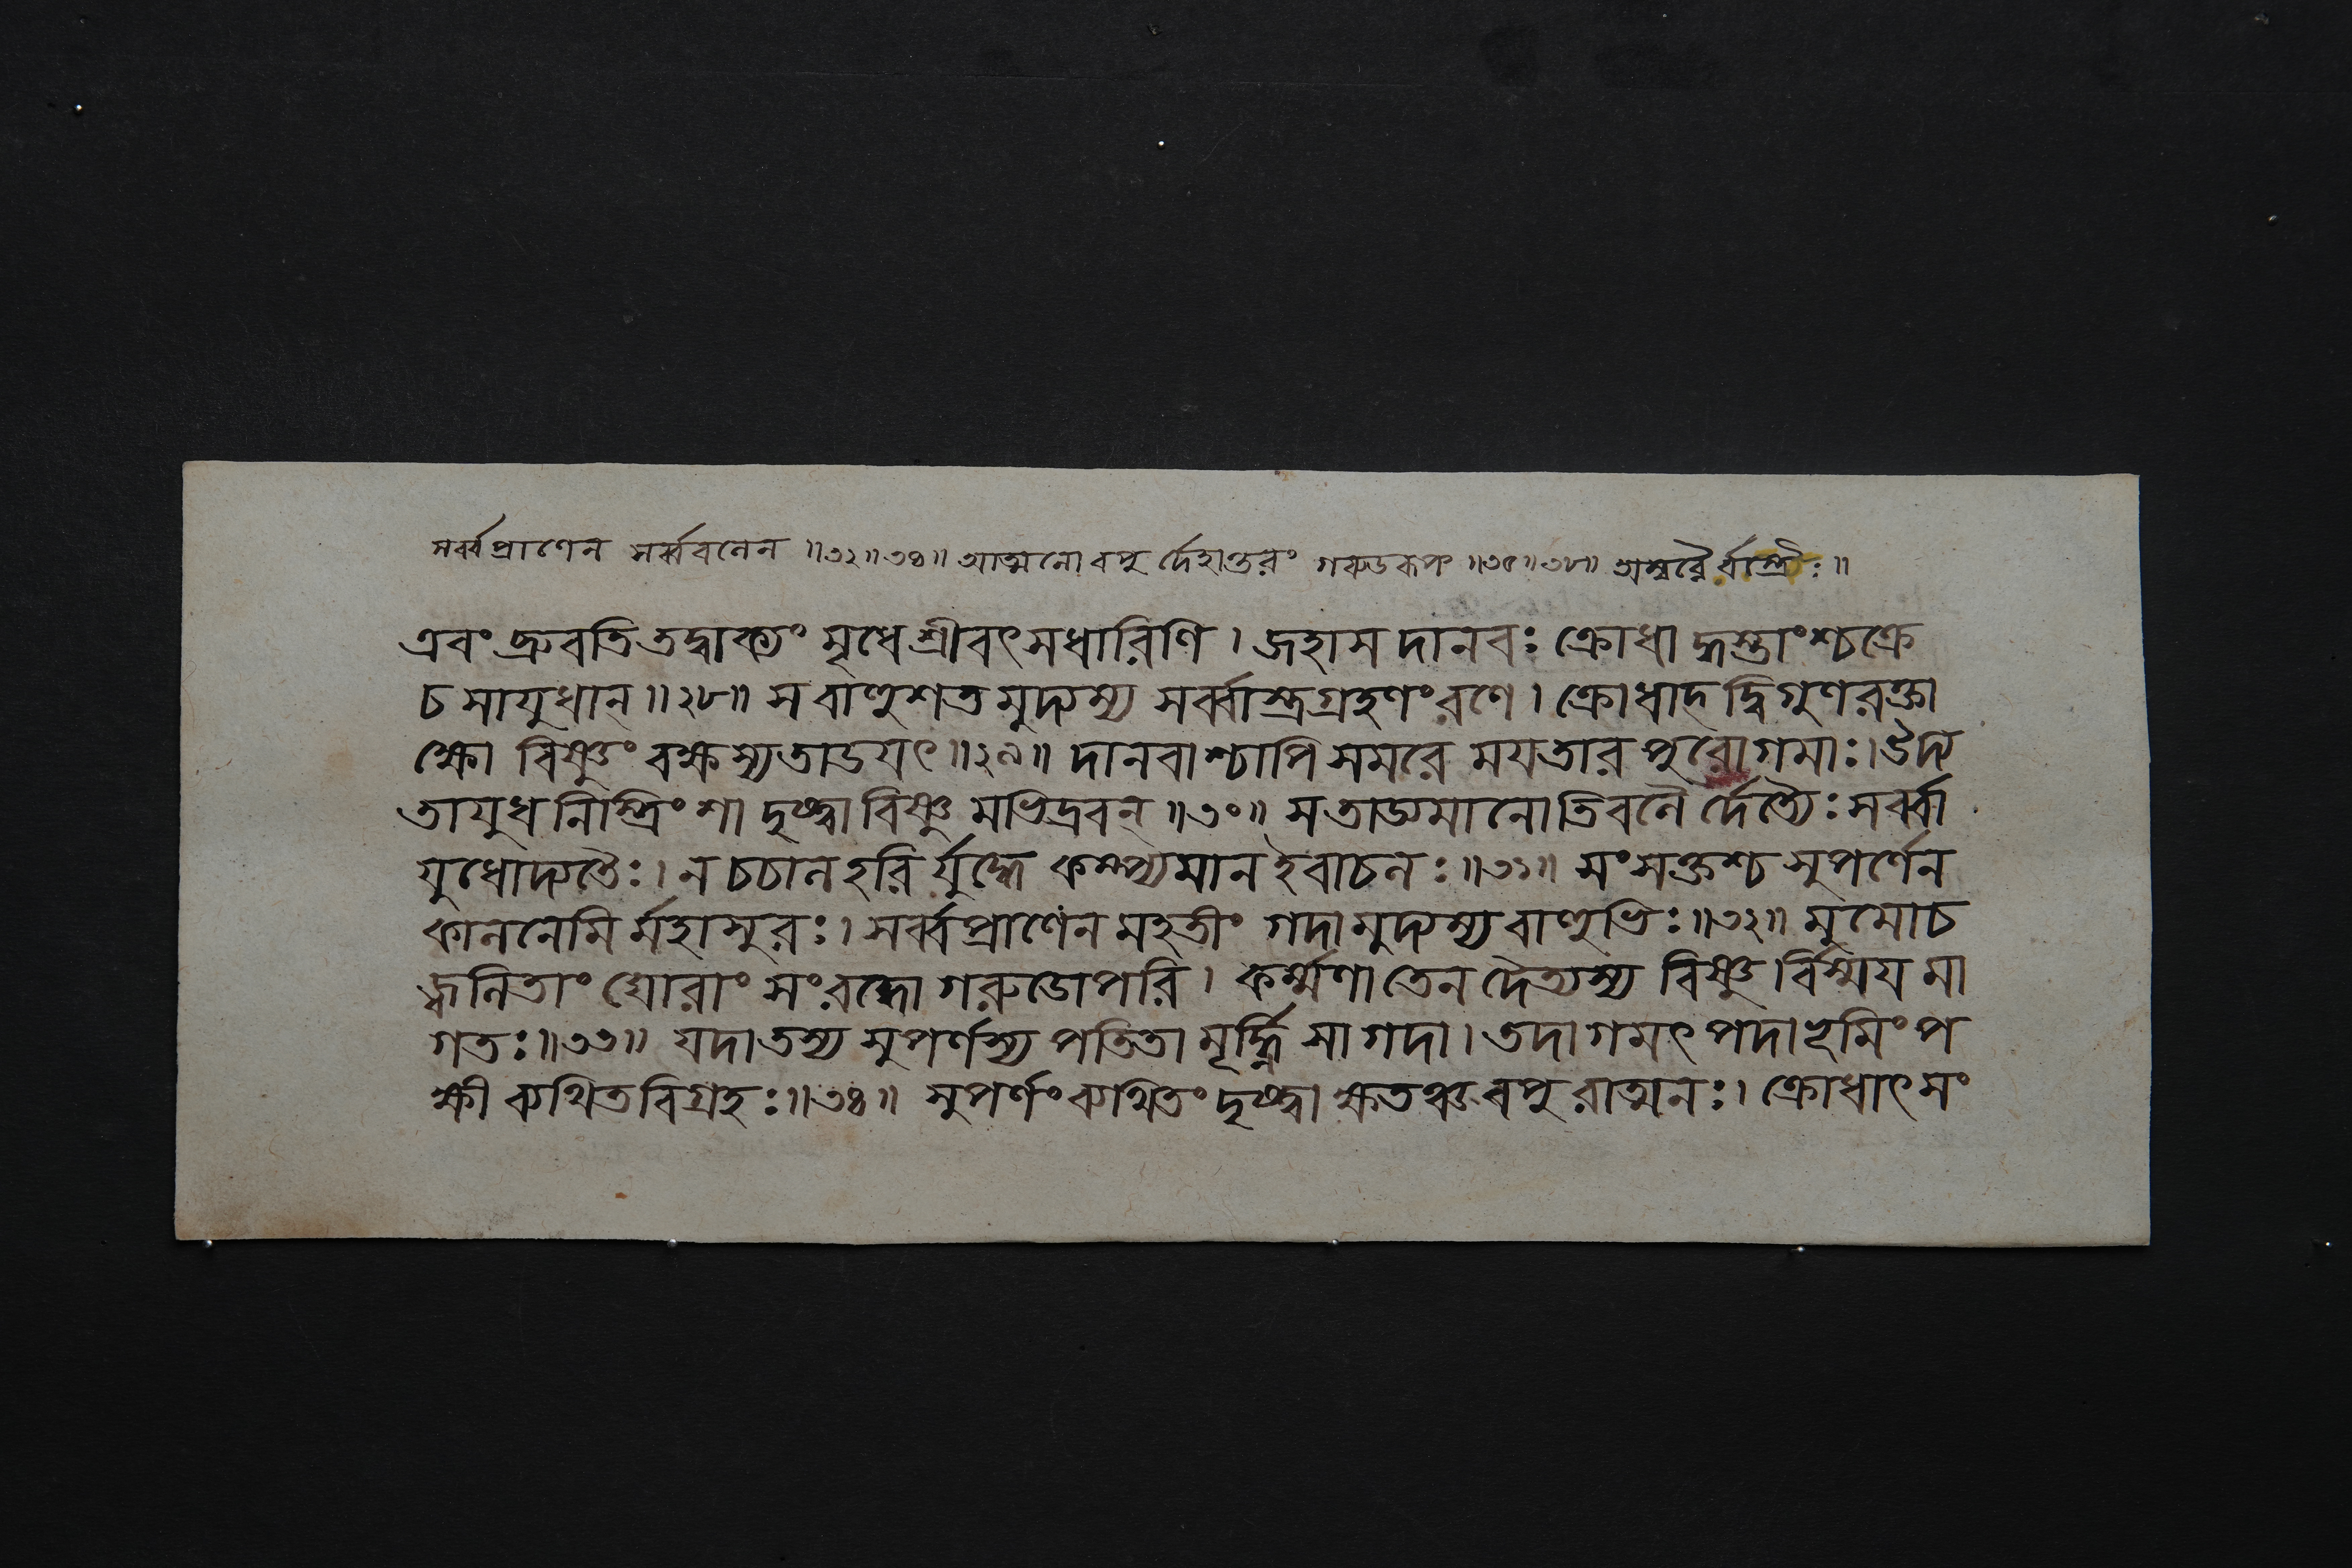 সর্ব্বপ্রাণেন সর্ব্ববলেন ॥৩২॥৩৪॥ আত্মনো বপু র্দেহান্তরং গরুডরূপং ॥৩৫॥৩৮॥ অম্বরৈর্বস্ত্রৈঃ॥
এবং ব্রুবতি তদ্বাক্যং মৃধে শ্রীবৎসধারিণি । জহাস দানবঃ ক্রোধা দ্ধস্তাংশ্চক্রে
চ সাযুধান্ ॥২৮॥ স বাহুশত মুদ্যম্য সর্ব্বাস্ত্রগ্রহণং রণে । ক্রোধাদ্ দ্বিগুণ রক্তা
ক্ষো বিষ্ণুং বক্ষস্যতাডযৎ ॥২৯॥ দানবাশ্চাপি সমরে মযতার পুরোগমাঃ। উদ্য
তাযুধ নিস্ত্রিংশা দৃষ্ট্বা বিষ্ণু মভিদ্রবন্ ॥৩০॥ স তাড্যমানোতিবলৈ র্দৈত্যৈঃ সর্ব্বা
যুধোদ্যতৈঃ। ন চচাল হরি র্যুদ্ধে কম্প্যমান ইবাচলঃ॥৩১॥ সংসক্তশ্চ সুপর্ণেন
কালনেমি র্মহাসুরঃ। সর্ব্বপ্রাণেন মহতীং গদামুদ্যম্য বাহুভিঃ॥৩২॥ মুমোচ
জ্বলিতাং ঘোরাং সংরব্ধো গরুডোপরি । কর্ম্মণা তেন দৈত্যস্য বিষ্ণু র্বিস্ময মা
গতঃ॥৩৩॥ যদা তস্য সুপর্ণস্য পতিতা মূর্দ্ধ্নি সা গদা । তদাগমৎ পদা ভূমিং প
ক্ষী ব্যথিত বিগ্রহঃ॥৩৪॥ সুপর্ণং ব্যথিতং দৃষ্ট্বা ক্ষতঞ্চ বপু রাত্মনঃ। ক্রোধাৎ সং